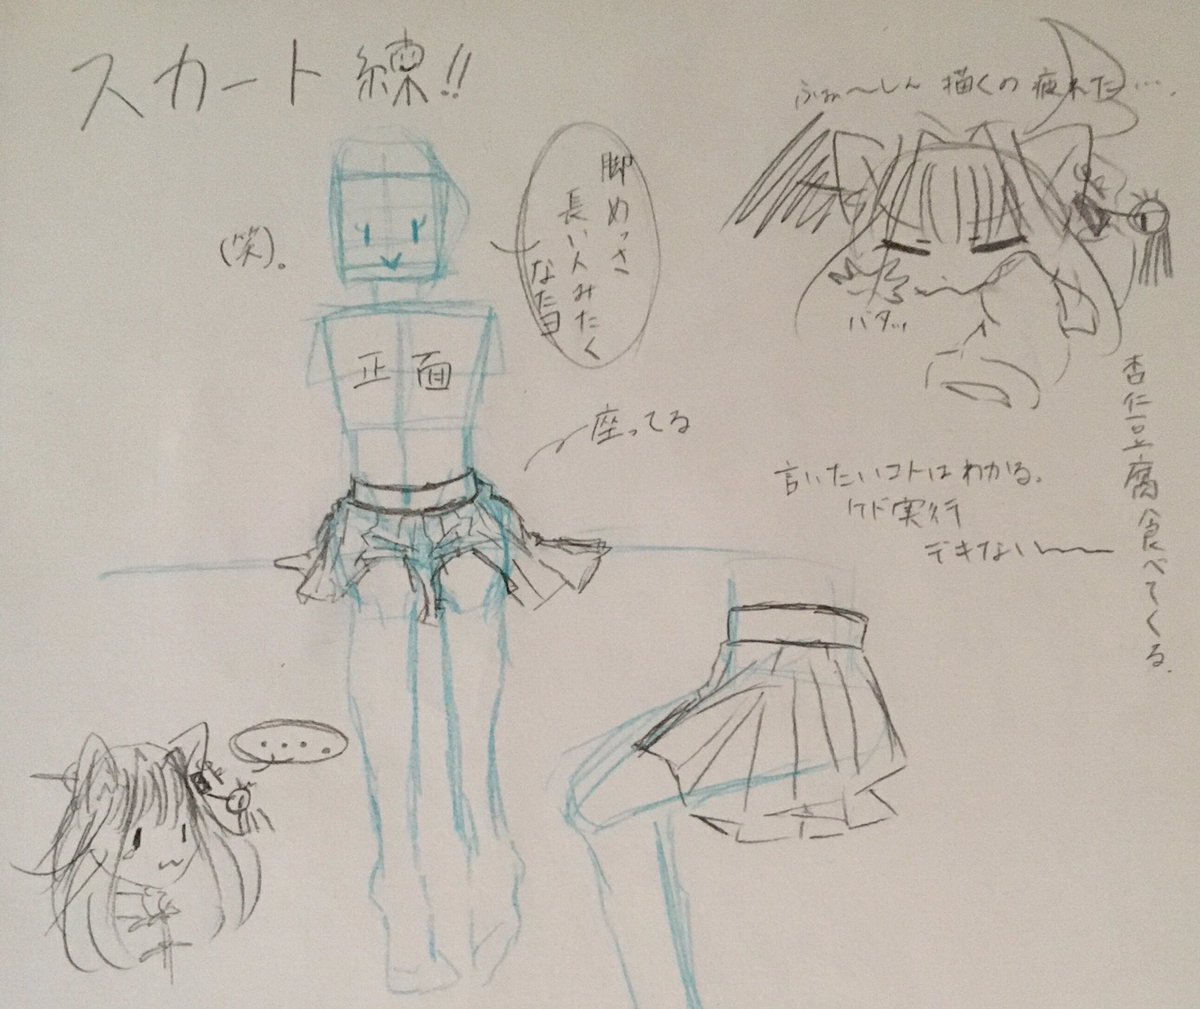 スカート練!!
ふぉ〜しん描くの疲れた….
脚めっさ
長い人みたく
なたヨ
(笑)。
正面
座ってる
バタッ
杏仁豆腐食べてくる.
言いたいコトはわかる.
ケド実行
デキない〜
....